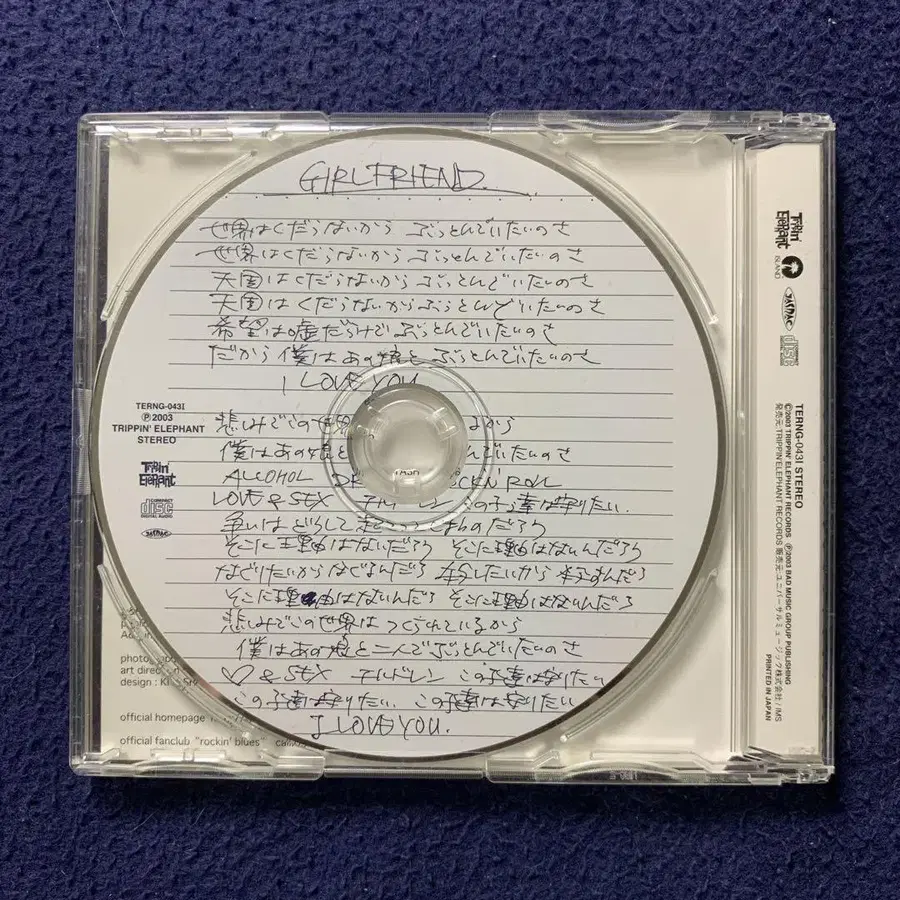 GIRLFRIEND.
世界はくだらないから ぶっとんでいたいのさ
世界はくだらないから ぶっとんでいたいのさ
天国はくだらないから ぶっとんでいたいのさ
天国はくだらないから ぶっとんでいたいのさ
希望は嘘だらけで ぶっとんでいたいのさ
だから僕はあの娘と ぶっとんでいたいのさ
I LOVE YOU
悲しみでこの世界 るから
僕はあの娘と んでいたいのさ
ALCOHOL DR CK'N ROLL
LOVE & SEX チルドレン この子達は守りたい.
争いはどうして のだろう
そこに理由はないだろう そこに理由はないんだろう
なぐりたいからなぐるんだろう 殺したいから 殺すんだろう
そこに理由はないんだろ そこに理由はないんだろ
悲しみでこの世界は つくられているから
僕はあの娘と二人で ぶっとんでいたいのさ
♡ & SEX チルドレン この子達は守りたい
この子達は守りたい この子達は守りたい
I LOVE YOU.
TERNG-043I
Ⓟ2003
TRIPPIN' ELEPHANT
STEREO
Trippin' Elephant
COMPACT disc DIGITAL AUDIO
JASRAC
art direc
design : K
official homepage
official fanclub "rockin' blues"
Trippin' Elephant
ISLAND
JASRAC
disc
TERNG-043I STEREO
©2003 TRIPPIN' ELEPHANT RECORDS Ⓟ2003 BAD MUSIC GROUP PUBLISHING
発売元:TRIPPIN'ELEPHANT RECORDS 販売元:ユニバーサルミュージック株式会社/IMS
PRINTED IN JAPAN